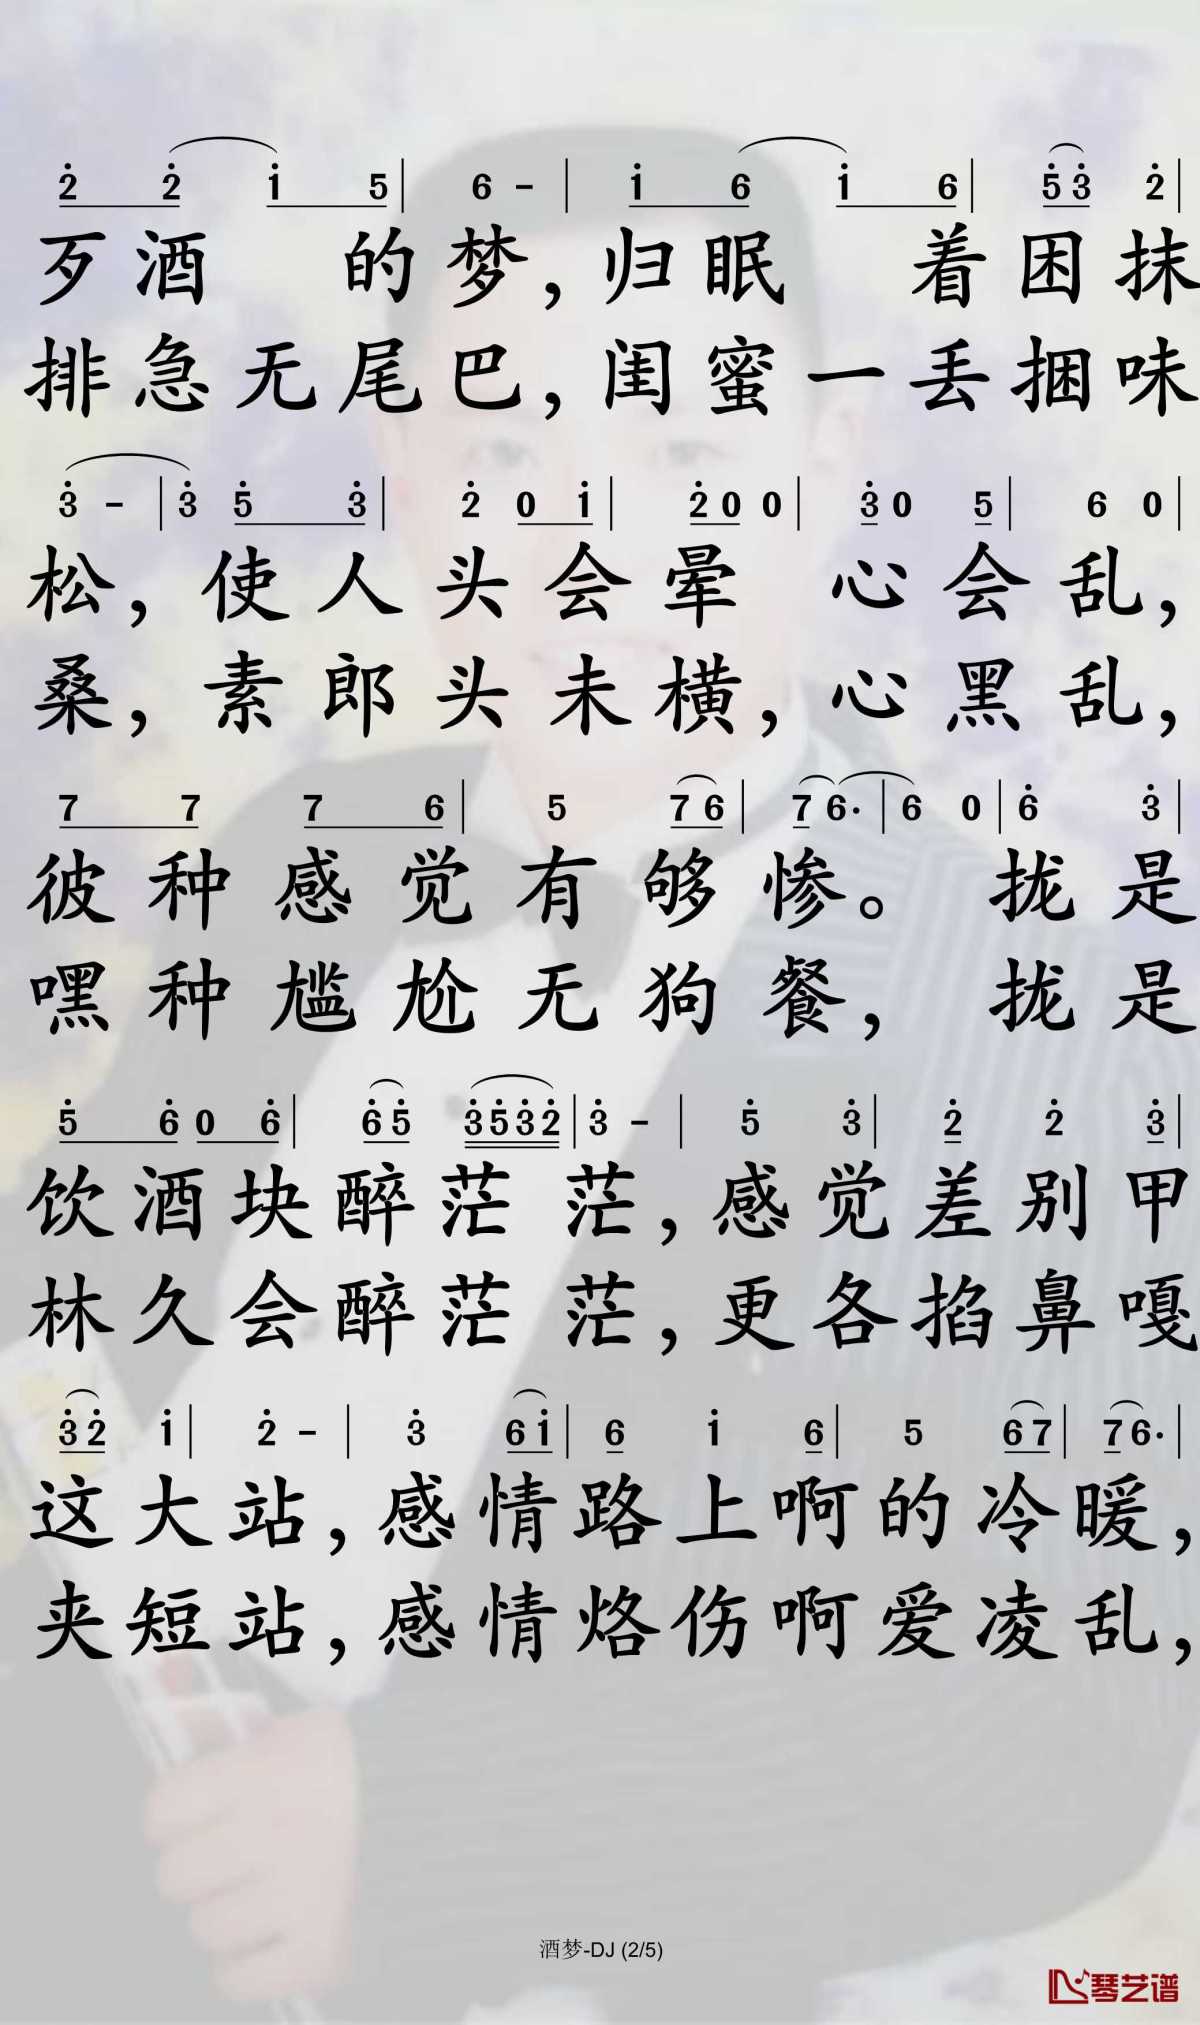 2 2 1 5 | 6 - | 1 6 1 6 | 5 3 2 |
歹酒 的梦，归眠 着困抹
排急无尾巴，闺蜜一丢捆味
3 - | 3 5 3 | 2 0 1 | 2 0 0 | 3 0 5 | 6 0 |
松，使人头会晕 心会乱，
桑，素郎头未横，心黑乱，
7 7 7 6 | 5 7 6 | 7 6· | 6 0 | 6 3 |
彼种感觉有够惨。 拢是
嘿种尴尬无狗餐， 拢是
5 6 0 6 | 6 5 3 5 3 2 | 3 - | 5 3 | 2 2 3 |
饮酒块醉茫 茫，感觉差别甲
林久会醉茫 茫，更各掐鼻嘎
3 2 1 | 2 - | 3 6 1 | 6 1 6 | 5 6 7 | 7 6· |
这大站，感情路上啊的冷暖，
夹短站，感情烙伤啊爱凌乱，
酒梦-DJ (2/5)
琴艺谱